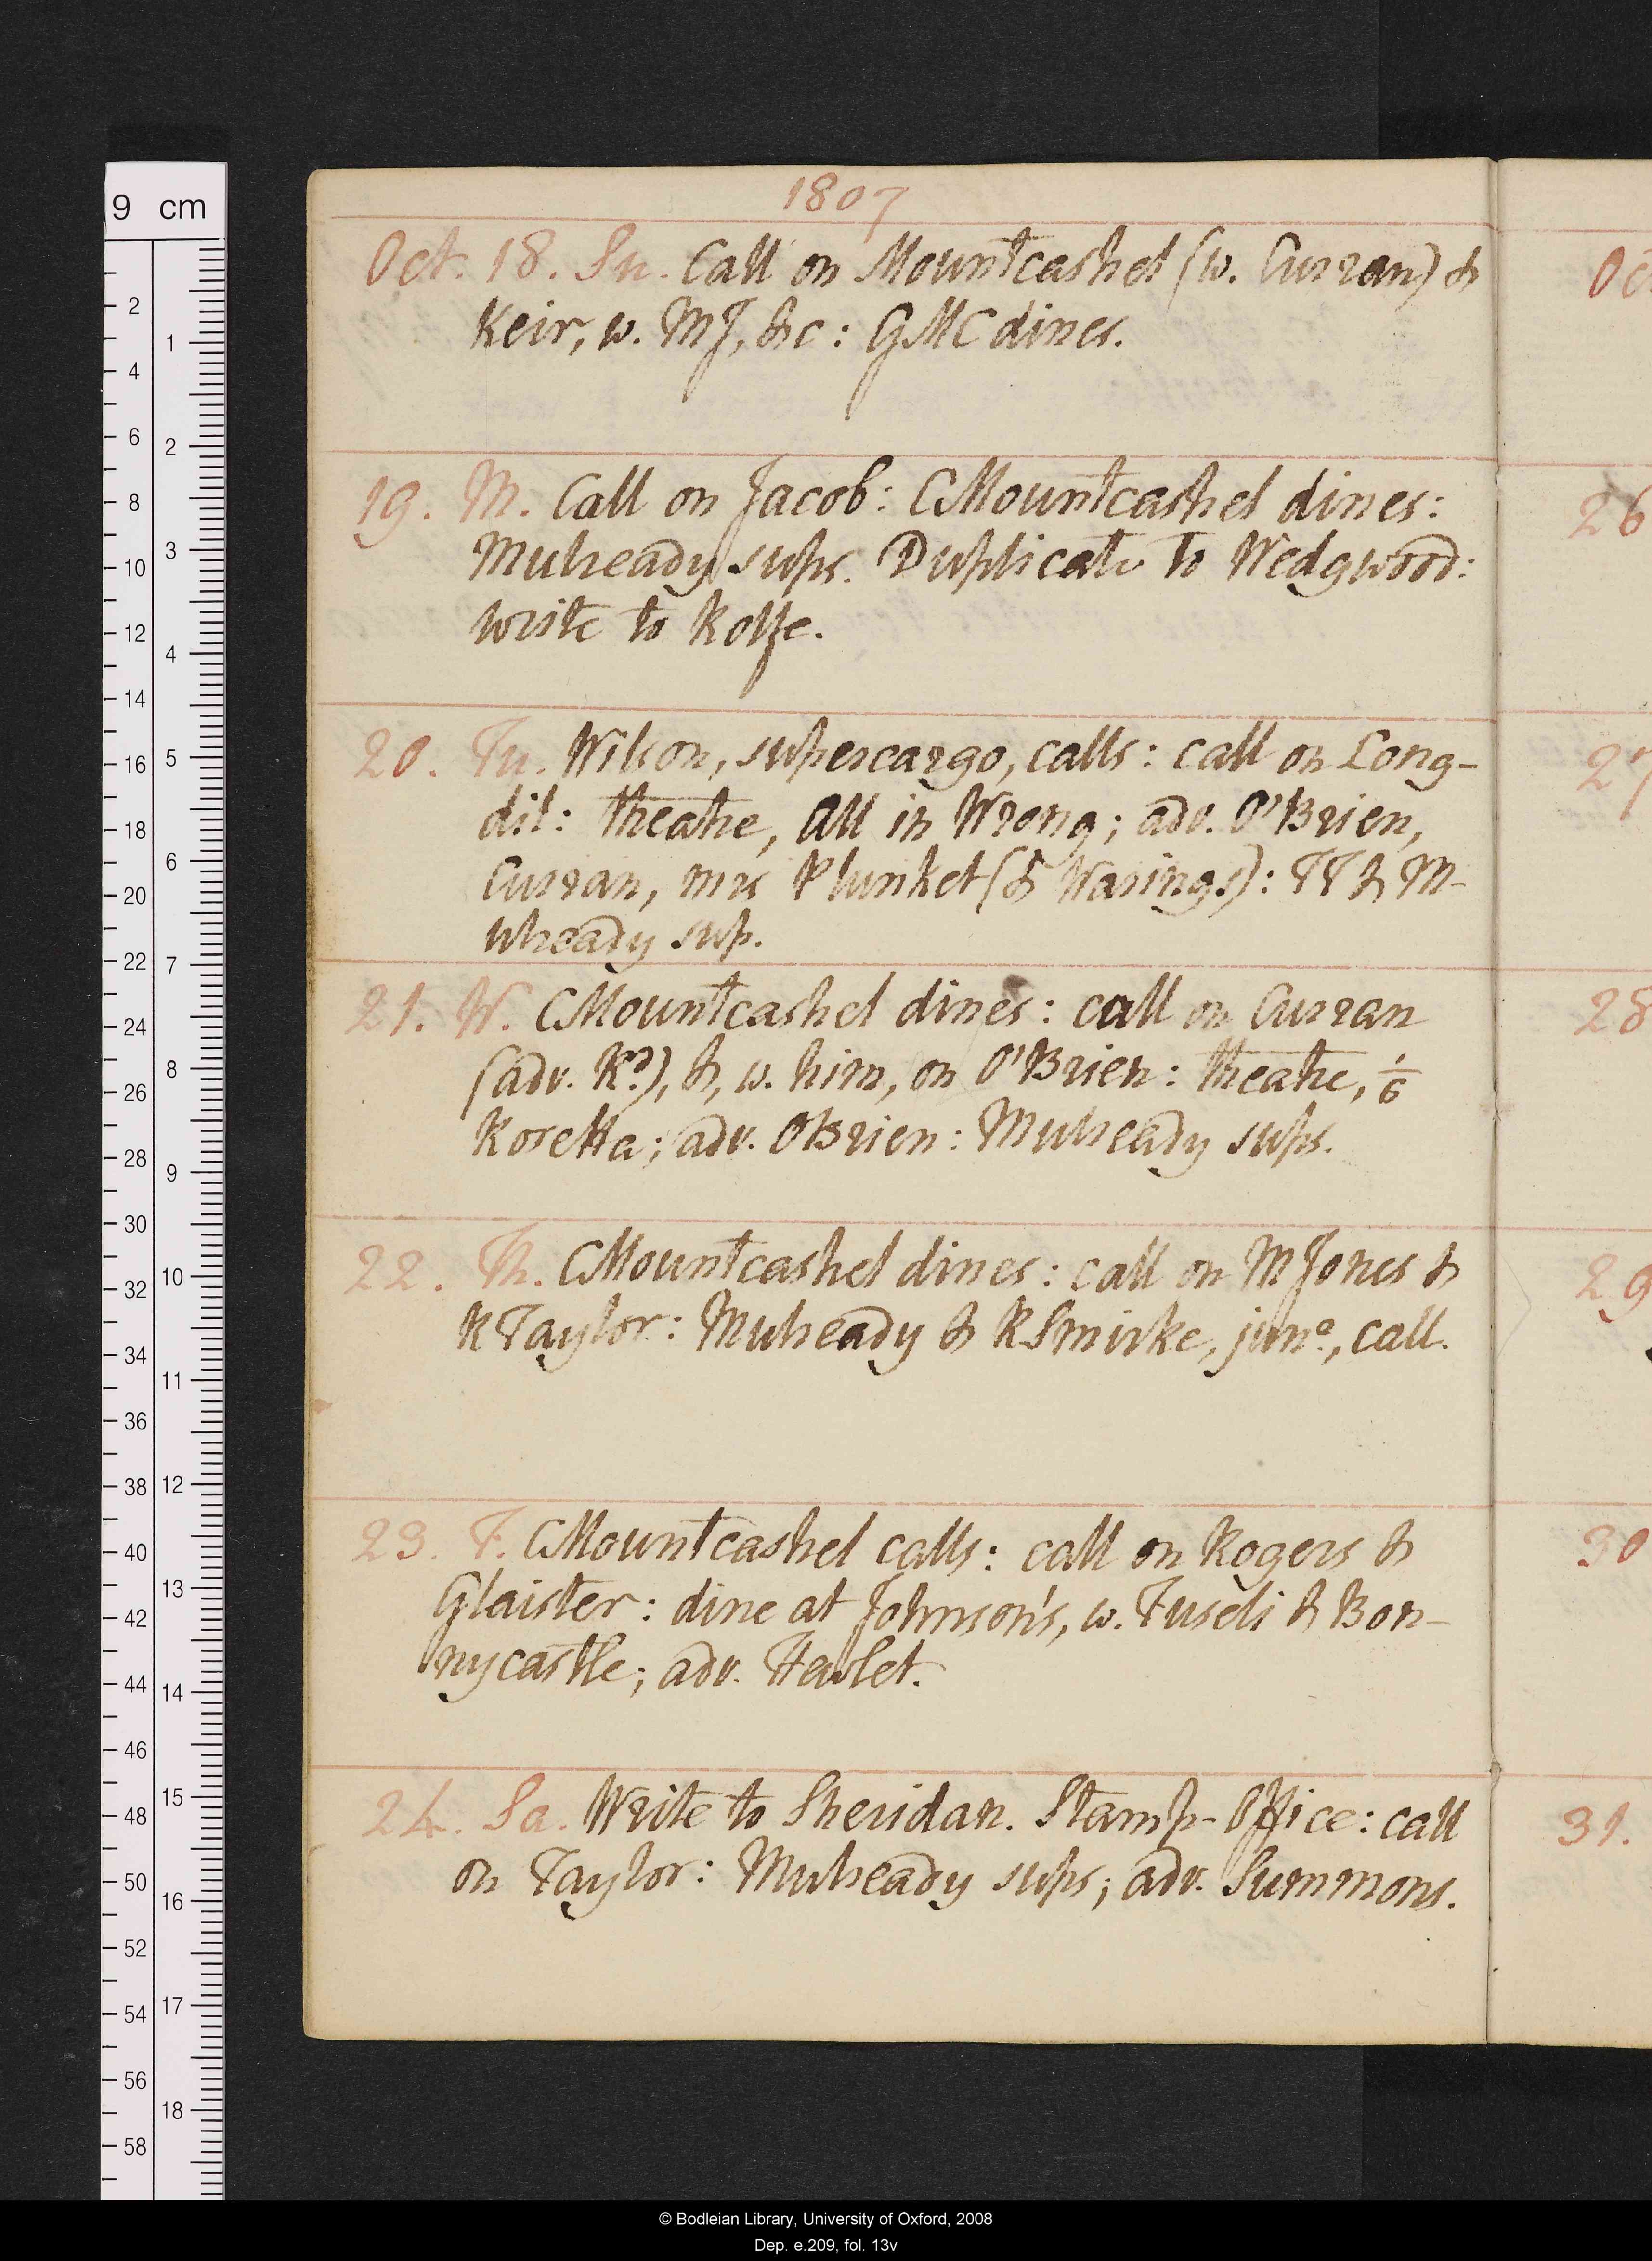 1807
Oct. 18. Su. Call on Mountcashel (w. Curran) &
Keir, w. MJ, &c: GMC dines.
19. M. Call on Jacob: CMountcashel dines:
Mulready sups. Duplicate to Wedgwood:
write to Rolfe.
20. Tu. Wilson, supercargo, calls: call on Long-
dil: theatre, All in Wrong; adv. O'Brien,
Curran, mrs Plunket (& Warings): TT & M-
ulready sup.
21. W. CMountcashel dines: call on Curran
(adv. Kd), &, w. him, on O'Brien: theatre, 1/6
Rosetta; adv. OBrien: Mulready sups.
22. Th. CMountcashel dines: call on MJones &
RTaylor: Mulready & RSmirke, junr, call.
23. F. CMountcashel calls: call on Rogers &
Glaister: dine at Johnson's, w. Fuseli & Bon-
nycastle; adv. Hewlet.
24. Sa. Write to Sheridan. Stamp-Office: call
on Taylor: Mulready sups; adv. Summons.
Oc
26
27
28
29
30
31.
9 cm
2
4
6
8
10
12
14
16
18
20
22
24
26
28
30
32
34
36
38
40
42
44
46
48
50
52
54
56
58
1
2
3
4
5
6
7
8
9
10
11
12
13
14
15
16
17
18
© Bodleian Library, University of Oxford, 2008
Dep. e.209, fol. 13v